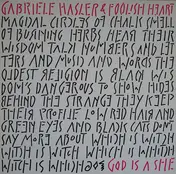 GABRIELE HASLER & FOOLISH HEART
MAGICAL CIRCLES OF CHALK SMELL
OF BURNING HERBS HEAR THEIR
WISDOM TALK NUMBERS AND LET
TERS AND MUSIC AND WORDS TH
OLDEST RELIGION BLACK WIS
DOMS DANGEROUS TO SHOW HIDE
BEHIND THE STRANGE THEY KEEP
THEIR PROFILE LOW RED HAIR AND
GREEN EYES AND BLACK CATS DON'T
SAY MORE ABOUT WHICH IS WITCH
WITCH IS WITCH WHICH IS WHICH
WHICH IS WITCH WHICH GOD IS A SHE